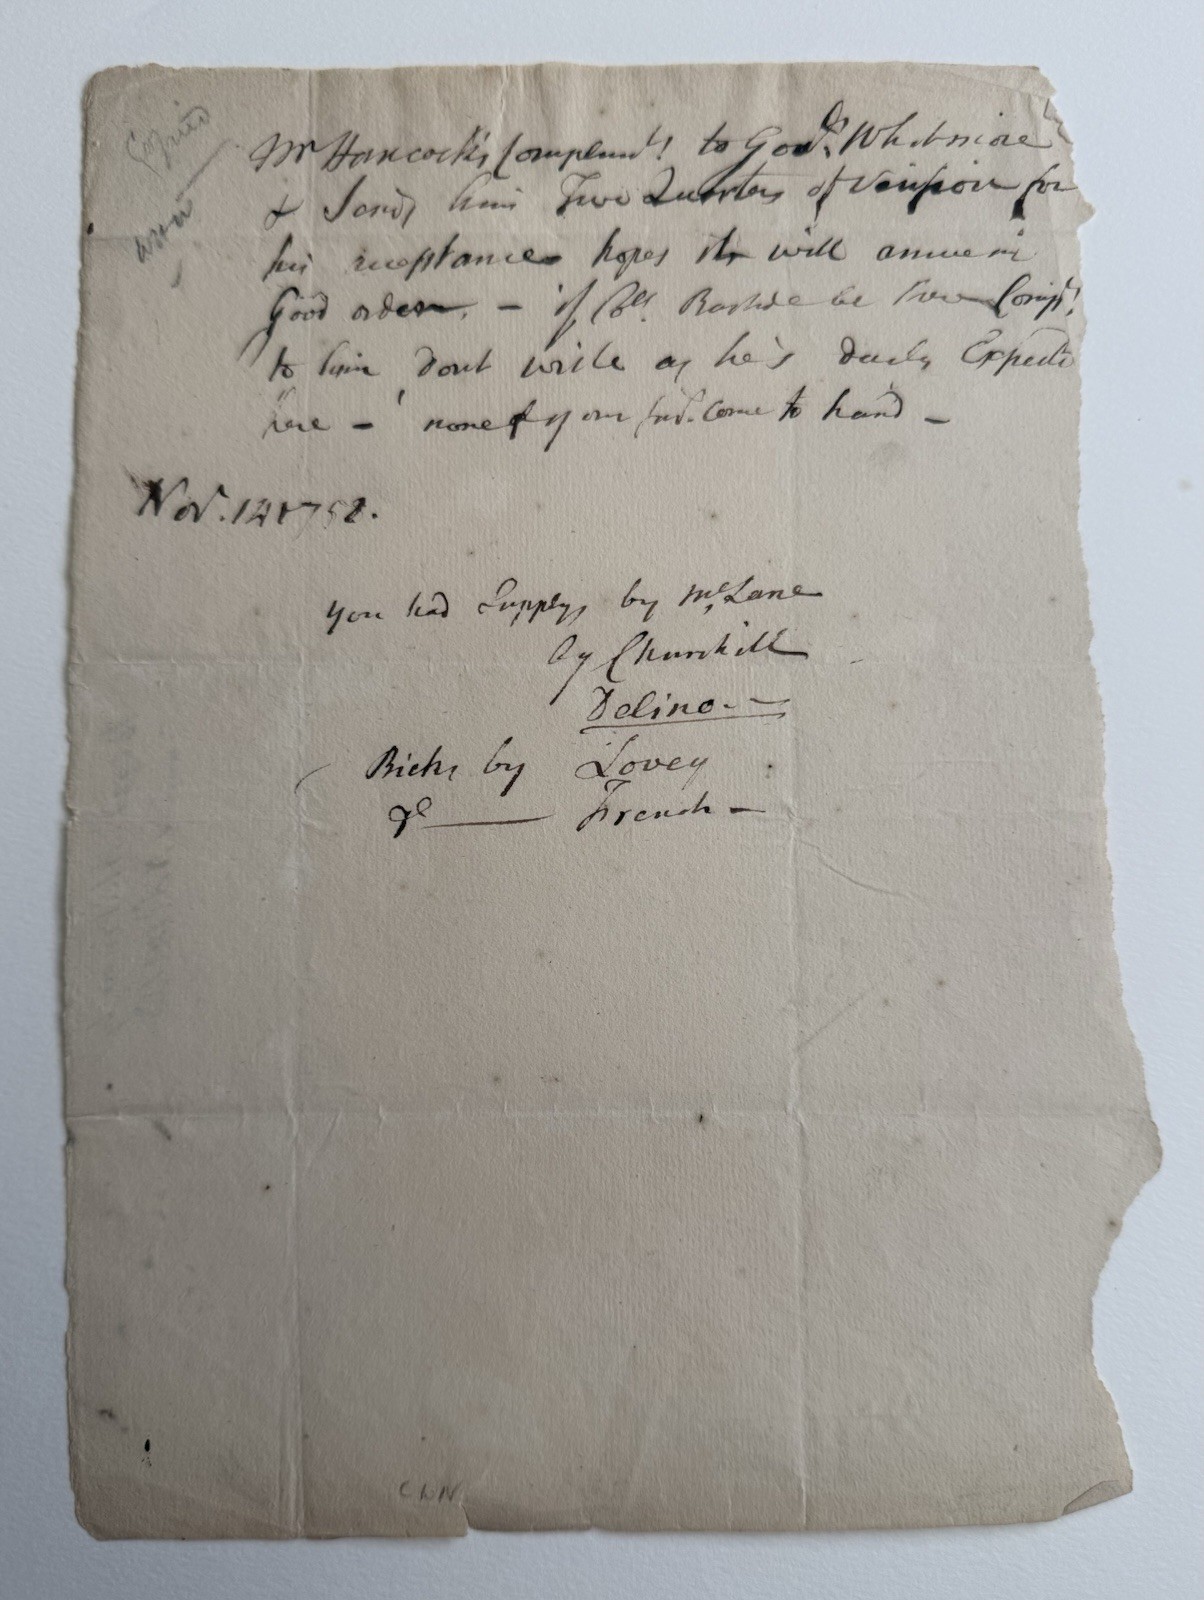 Copied
Mr Hancock's Complemts. to Govr. Whitmore
& Sends him Two Quarters of Venison for
his acceptance hopes it will arrive in
Good order. – if Coll. Bastide be there Compts.
to him Dont write as he's daily Expectd
here – none of your come to hand –
Nov. 12 1758.
You had Supplys by McLane
by Churchill
Delino. –
Bricks by Lovey
Do —— French –
CNN